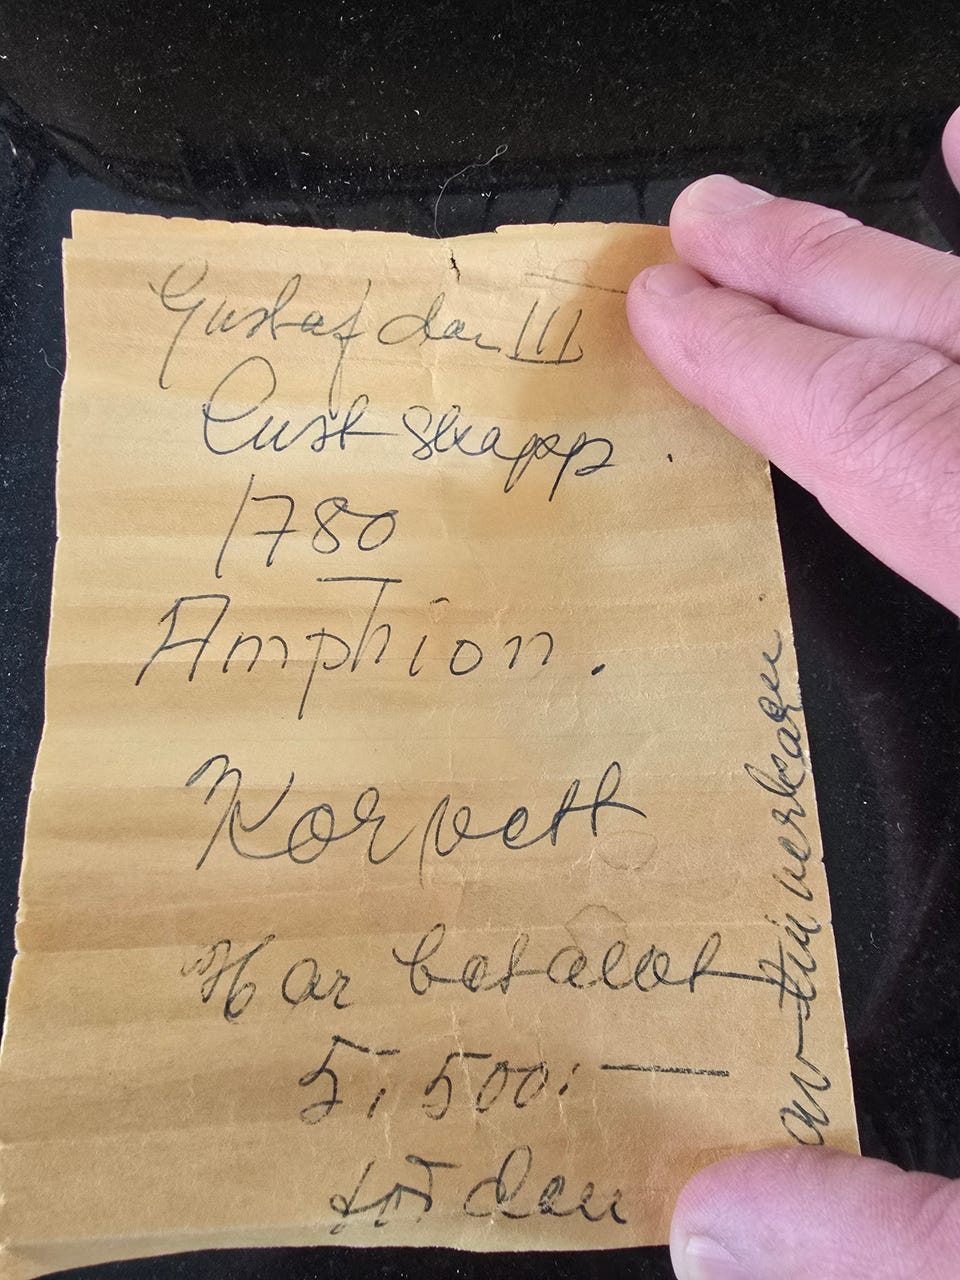 Gustaf den III
Lust Skepp.
1780
Amphion.
Korvett
Har betalat
5,500:—
för den
av tillverkaren.